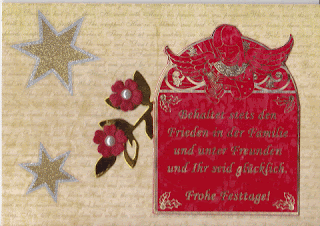 Behaltet stets den
Frieden in der Familie
und unter Freunden
und Ihr seid glücklich.
Frohe Festtage!